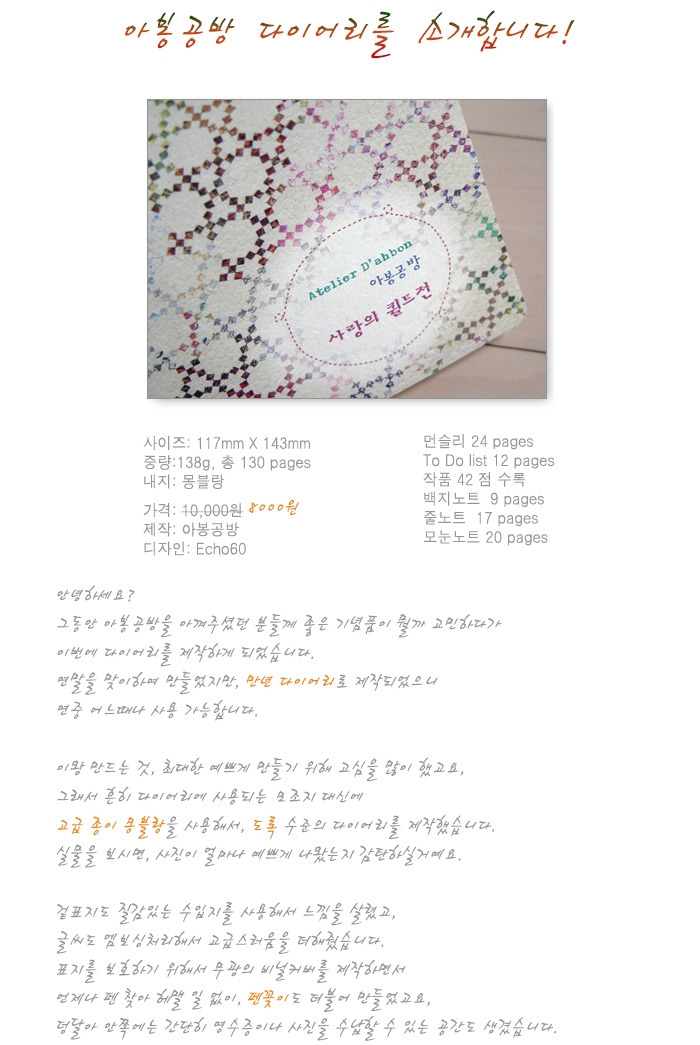 아봉공방 다이어리를 소개합니다!
Atelier D'ahbon
아봉공방
사랑의 퀼트전
사이즈: 117mm X 143mm
중량:138g, 총 130 pages
내지: 몽블랑
가격: 10,000원 8000원
제작: 아봉공방
디자인: Echo60
먼슬리 24 pages
To Do list 12 pages
작품 42 점 수록
백지노트 9 pages
줄노트 17 pages
모눈노트 20 pages
안녕하세요?
그동안 아봉공방을 아껴주셨던 분들께 좋은 기념품이 뭘까 고민하다가
이번에 다이어리를 제작하게 되었습니다.
연말을 맞이하여 만들었지만, 만년 다이어리로 제작되었으니
연중 어느때나 사용 가능합니다.
이왕 만드는 것, 최대한 예쁘게 만들기 위해 고심을 많이 했고요,
그래서 흔히 다이어리에 사용되는 모조지 대신에
고급 종이 몽블랑을 사용해서, 도록 수준의 다이어리를 제작했습니다.
실물을 보시면, 사진이 얼마나 예쁘게 나왔는지 감탄하실거예요.
겉표지도 질감있는 수입지를 사용해서 느낌을 살렸고,
글씨도 엠보싱처리해서 고급스러움을 더해줬습니다.
표지를 보호하기 위해서 무광의 비닐커버를 제작하면서
언제나 펜 찾아 헤맬 일 없이, 펜꽂이도 더불어 만들었고요,
덩달아 안쪽에는 간단히 영수증이나 사진을 수납할 수 있는 공간도 생겼습니다.